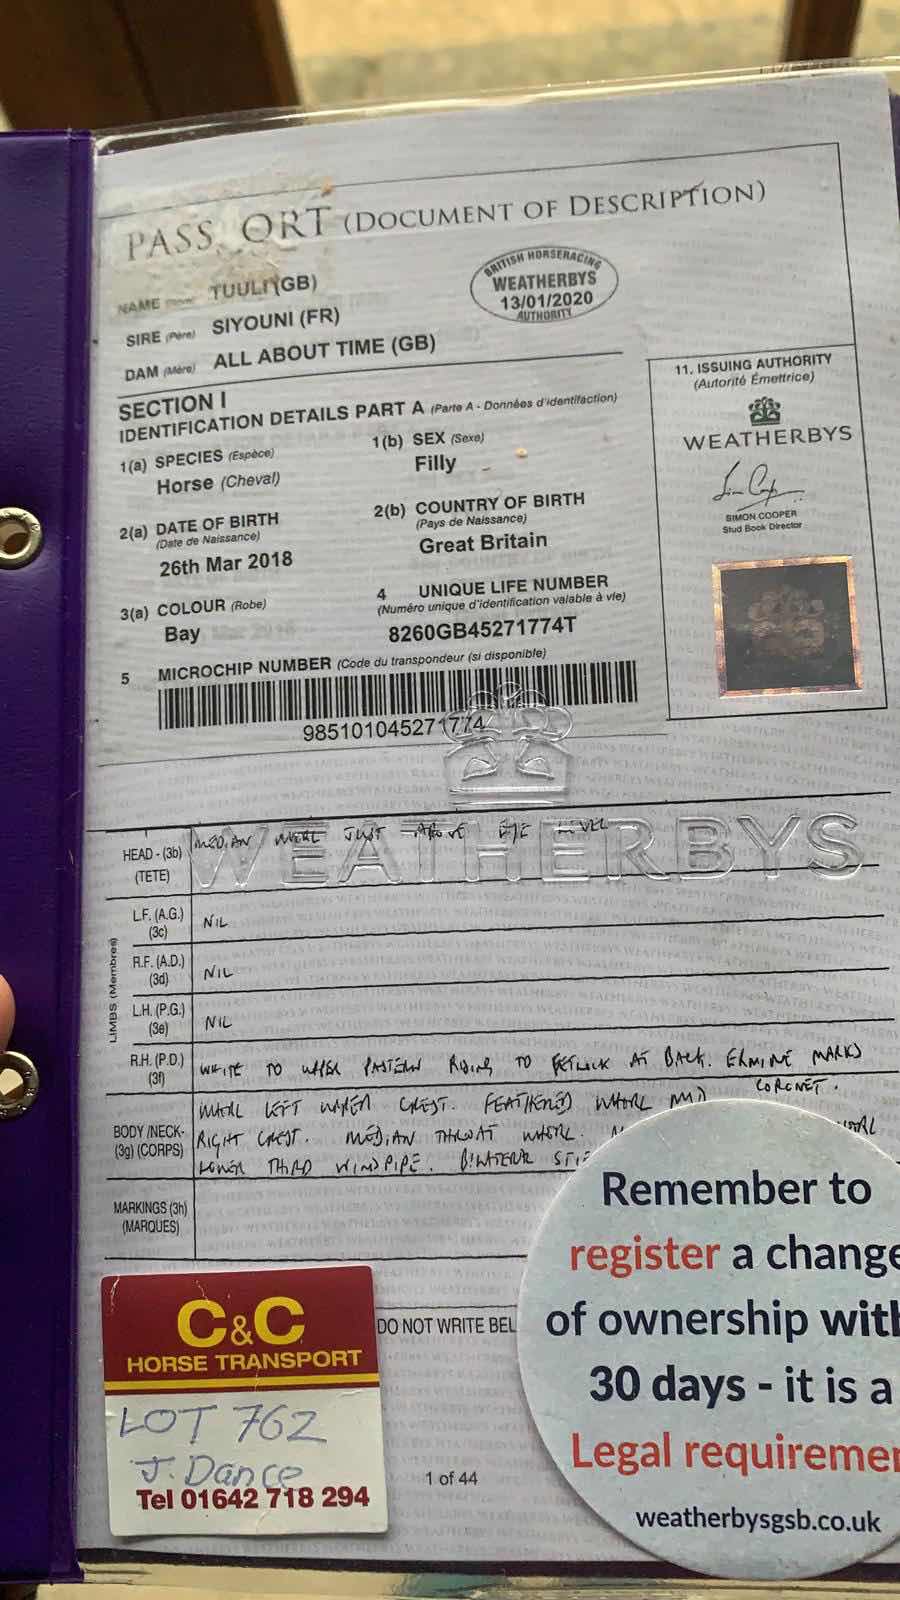 PASS ORT (DOCUMENT OF DESCRIPTION)
NAME TUULI (GB)
SIRE (Père) SIYOUNI (FR)
DAM (Mère) ALL ABOUT TIME (GB)
BRITISH HORSERACING
WEATHERBYS
13/01/2020
AUTHORITY
SECTION I
IDENTIFICATION DETAILS PART A (Parte A - Données d'identifaction)
1(a) SPECIES (Espèce)
Horse (Cheval)
1(b) SEX (Sexe)
Filly
2(a) DATE OF BIRTH
(Date de Naissance)
26th Mar 2018
2(b) COUNTRY OF BIRTH
(Pays de Naissance)
Great Britain
3(a) COLOUR (Robe)
Bay
4 UNIQUE LIFE NUMBER
(Numéro unique d'identification valable à vie)
8260GB45271774T
5 MICROCHIP NUMBER (Code du transpondeur (si disponible)
985101045271774
11. ISSUING AUTHORITY
(Autorité Émettrice)
WEATHERBYS
SIMON COOPER
Stud Book Director
WEATHERBYS
HEAD - (3b)
(TETE)
MEDIAN WHORL JUST ABOVE EYE LEVEL
LIMBS (Membres)
L.F. (A.G.)
(3c)
NIL
R.F. (A.D.)
(3d)
NIL
L.H. (P.G.)
(3e)
NIL
R.H. (P.D.)
(3f)
WHITE TO UPPER PASTERN RISING TO FETLOCK AT BACK. ERMINE MARKS
CORONET.
BODY /NECK-
(3g) (CORPS)
WHORL LEFT UPPER CREST. FEATHERED WHORL MID
RIGHT CREST. MEDIAN THROAT WHORL.
LOWER THIRD WINDPIPE. BILATERAL
MARKINGS (3h)
(MARQUES)
DO NOT WRITE BEL
C&C
HORSE TRANSPORT
LOT 762
J. Dance
Tel 01642 718 294
1 of 44
Remember to
register a change
of ownership with
30 days - it is a
Legal requiremen
weatherbysgsb.co.uk